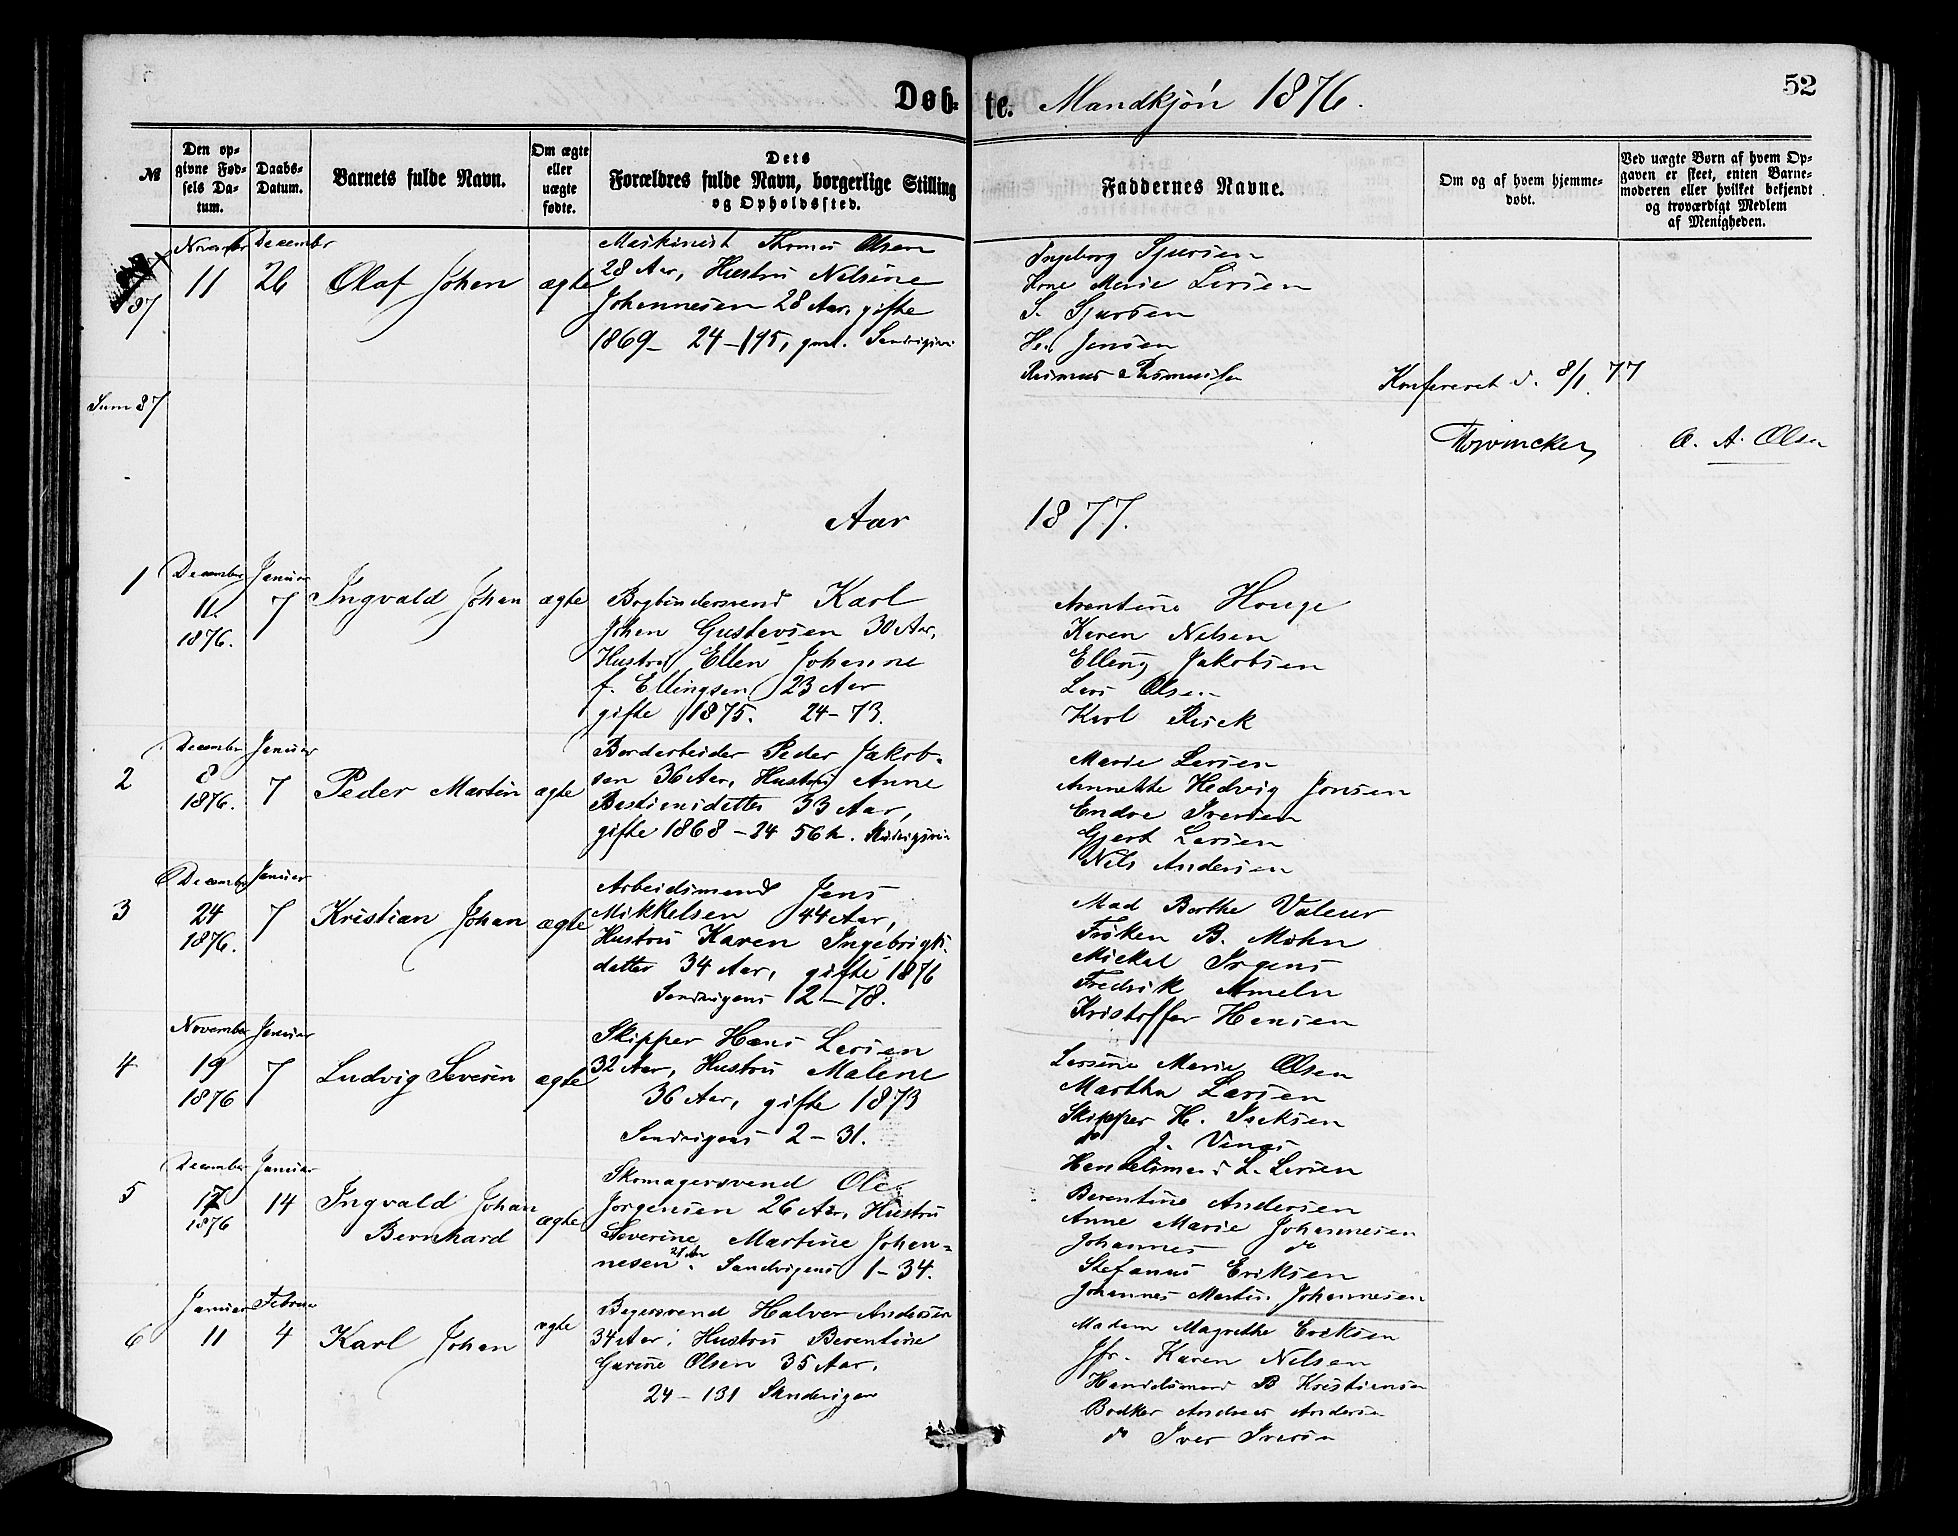 52
Døb- te. Mandkjøn 1876.
№
Den op-
givne Fød-
sels Da-
tum.
Daabs-
Datum.
Barnets fulde Navn.
Om ægte
eller
uægte
fødte.
Dets
Forældres fulde Navn, borgerlige Stilling
og Opholdssted.
Faddernes Navne.
Om og af hvem hjemme-
døbt.
Ved uægte Børn af hvem Op-
gaven er skeet, enten Barne-
moderen eller hvilket bekjendt
og troværdigt Medlem
af Menigheden.
87
November
11
December
26
Olaf Johan
ægte
Maskinist Thomas Olsen
28 Aar, Hustru Nelsine
Johannesen 28 Aar, gifte
1869 – 24 –
Ingeborg Sjursen
Ane Marie Larsen
S. Sjursen
H. Jensen
Rasmus Rasmussen
Konfereret d. 8/1 77
O. A. Olsen
Sum 87
Aar 1877.
1
December
11
1876.
Januar
7
Ingvald Johan
ægte
Bogbindersvend Karl
Johan Gustavsen 30 Aar,
Hustru Ellen Johanne
f. Ellingsen 23 Aar
gifte 1875. 24–73.
Arentine Houge
Karen Nelsen
Elling Jakobsen
Lars Olsen
Karl
2
December
8
1876.
Januar
7
Peder Martin
ægte
Bordarbeider Peder Jakob-
sen 36 Aar, Hustru Anne
Bastiansdatter 33 Aar,
gifte 1868 – 24
Marie Larsen
Annette Hedvig Jonsen
Endre Iversen
Gjert Larsen
Nils Andersen
3
December
24
1876.
Januar
7
Kristian Johan
ægte
Arbeidsmand Jens
Mikkelsen 44 Aar,
Hustru Karen Ingebrigts-
datter 34 Aar, gifte 1876
Sandvigens 2–78.
Mad Berthe Valeur
Frøken B. Mohn
Mickal Irgens
Fredrik Ameln
Kristoffer Hansen
4
November
19
1876
Januar
7
Ludvig Severin
ægte
Skipper Hans Larsen
32 Aar, Hustru Malene
36 Aar, gifte 1873
Sandvigens 2–31.
Larsine Marie Olsen
Martha Larsen
Skipper H. Isaksen
do J.
Handelsmand L. Larsen
5
December
17
1876
Januar
14
Ingvald Johan
Bernhard
ægte
Skomagersvend Ole
Jørgensen 26 Aar, Hustru
Severine Martine Johan-
nesen. Sandvigens 1–34.
Berentine Andersen
Anne Marie Johannesen
Johannes do
Stefanus Eriksen
Johannes Martin Johannesen
6
Januar
11
Februar
4
Karl Johan
ægte
Bagersvend Halver Andersen
34 Aar, Hustru Berentine
Garine Olsen 35 Aar.
24 – 131 Sandvigen
Madam Magrethe Eriksen
Jfr. Karen Nelsen
Handelsmand B Kristiansen
Bødker Andreas Andersen
do Iver Iversen